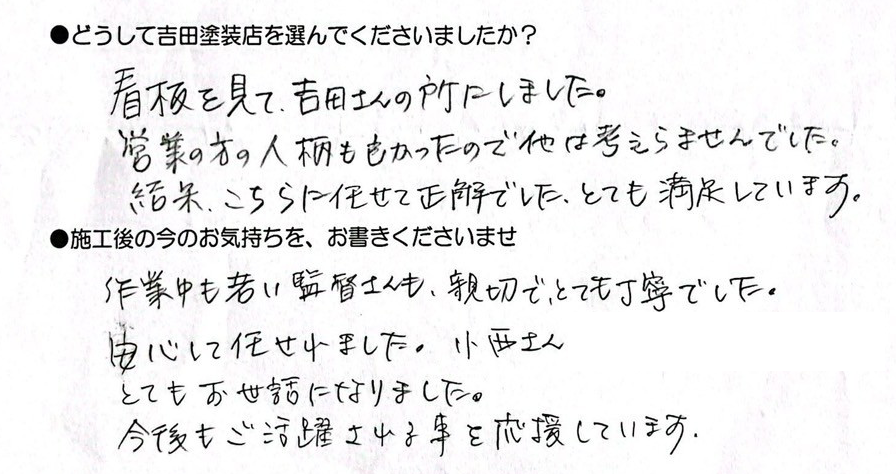 ●どうして吉田塗装店を選んでくださいましたか？
看板を見て、吉田さんの所にしました。
営業の方の人柄も良かったので他は考えらませんでした。
結果、こちらに任せて正解でした、とても満足しています。
●施工後の今のお気持ちを、お書きくださいませ
作業中も若い監督さんも、親切で、とても丁寧でした。
安心して任せれました。小西さん
とてもお世話になりました。
今後もご活躍される事を応援しています.